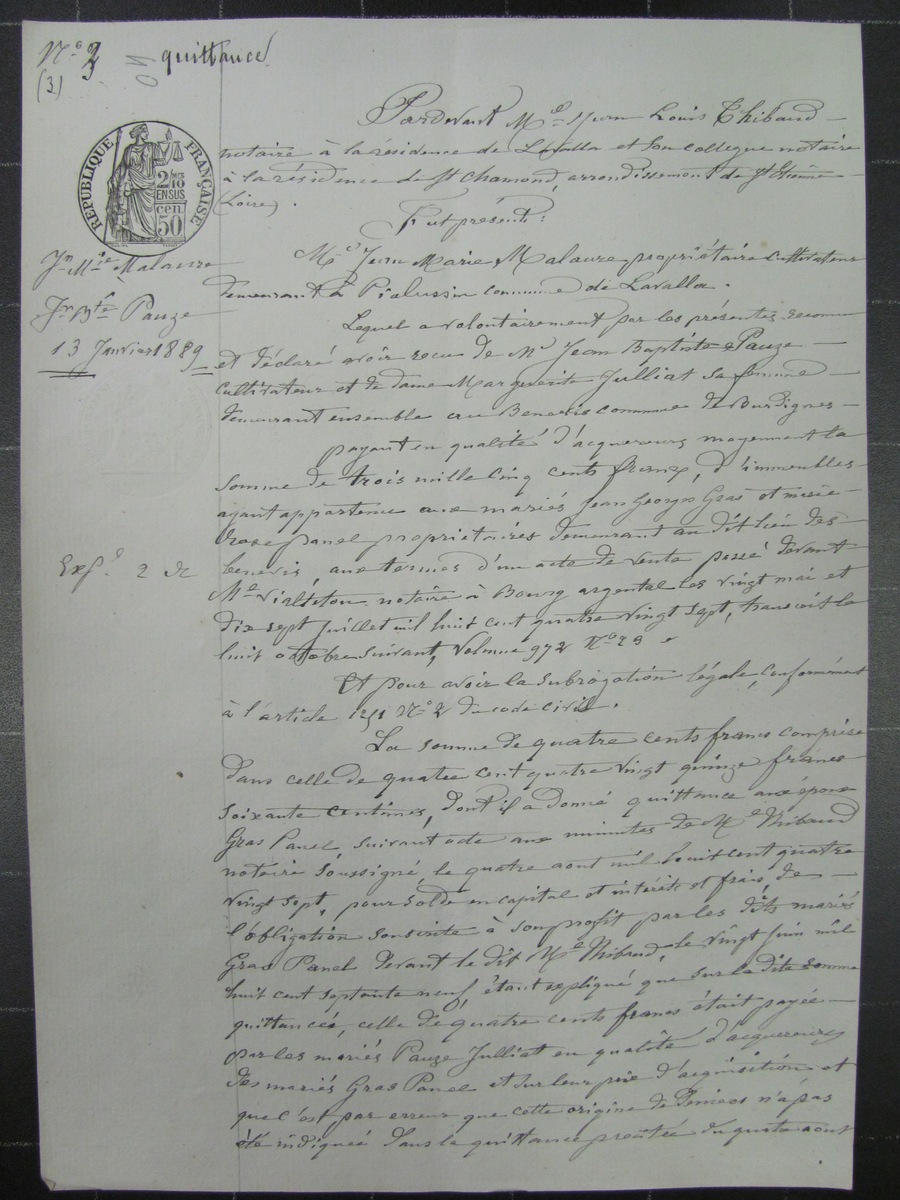 N° 2
(3)
quittance
RÉPUBLIQUE FRANÇAISE
2/10
EN SUS
cen.
50
Jn Mie Malaure
Jn Bte Pauze
13 Janvier 1889
Expé. 2
Pardevant Me Jean Louis Thibaud
notaire à la résidence de Lavalla et son collègue notaire
à la résidence de St Chamond, arrondissement de St Etienne
(Loire).
Fut présent:
Mr Jean Marie Malaure propriétaire cultivateur
demeurant à Pialussin commune de Lavalla.
Lequel a volontairement par les présentes reconnu
et déclaré avoir reçu de Mr Jean Baptiste Pauze
cultivateur et de dame Marguerite Julliat sa femme
demeurant ensemble au Benevis commune de Burdignes
payant en qualité d'acquereurs moyennant la
somme de trois mille cinq cents francs, d'immeubles
ayant appartenu aux mariés Jean Georges Gras et marie
rose panel propriétaires demeurant au dit lieu des
benevis, aux termes d'un acte de vente passé devant
Me Vialleton notaire à Bourg argental les vingt mai et
dix sept juillet mil huit cent quatre vingt sept, transcrit le
huit octobre suivant, Volume 972 N° 29
Et pour avoir la subrogation légale, conformément
à l'article 1251 N° 2 du code civil.
La somme de quatre cents francs comprise
dans celle de quatre cent quatre vingt quinze francs
soixante centimes, dont il a donné quittance aux époux
Gras Panel suivant acte aux minutes de Me Thibaud
notaire soussigné, le quatre aout mil huit cent quatre
vingt sept, pour solde en capital et intérêts et frais, de
l'obligation souscrite à son profit par les dits mariés
Gras Panel devant le dit Me Thibaud, le vingt juin mil
huit cent septante neuf, étant expliqué que sur la dite somme
quittancée, celle de quatre cents francs était payée
par les mariés Pauze Julliat en qualité d'acquereurs
des mariés Gras Panel et sur leur prix d'acquisition et
que c'est par erreur que cette origine de deniers n'a pas
été indiquée dans la quittance précitée du quatre aout